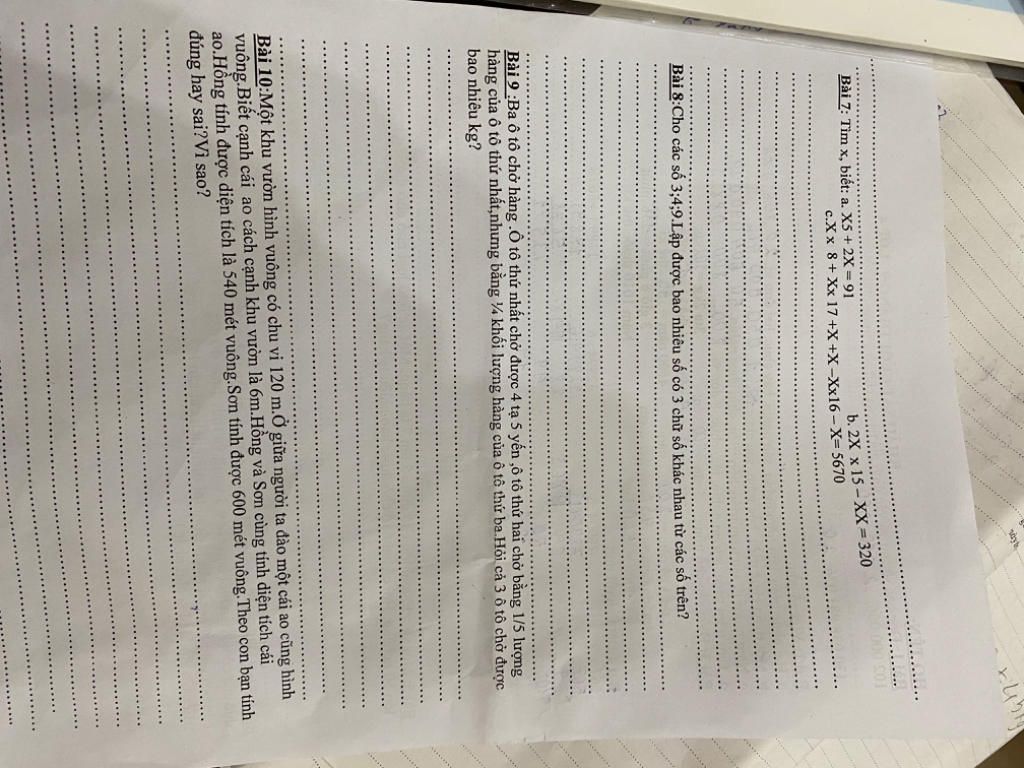 Bài 7: Tìm x, biết: a. X5 + 2X = 91 b. 2X x 15 – XX = 320
c.X x 8 + Xx 17 +X +X –Xx16 – X= 5670
Bài 8:Cho các số 3;4;9.Lập được bao nhiêu số có 3 chữ số khác nhau từ các số trên?
Bài 9 :Ba ô tô chở hàng .Ô tô thứ nhất chở được 4 tạ 5 yến ,ô tô thứ hai chở bằng 1/5 lượng
hàng của ô tô thứ nhất,nhưng bằng ¼ khối lượng hàng của ô tô thứ ba.Hỏi cả 3 ô tô chở được
bao nhiêu kg?
Bài 10:Một khu vườn hình vuông có chu vi 120 m.Ở giữa người ta đào một cái ao cũng hình
vuông.Biết cạnh cái ao cách cạnh khu vườn là 6m.Hồng và Sơn cùng tính diện tích cái
ao.Hồng tính được diện tích là 540 mét vuông.Sơn tính được 600 mét vuông.Theo con bạn tính
đúng hay sai?Vì sao?